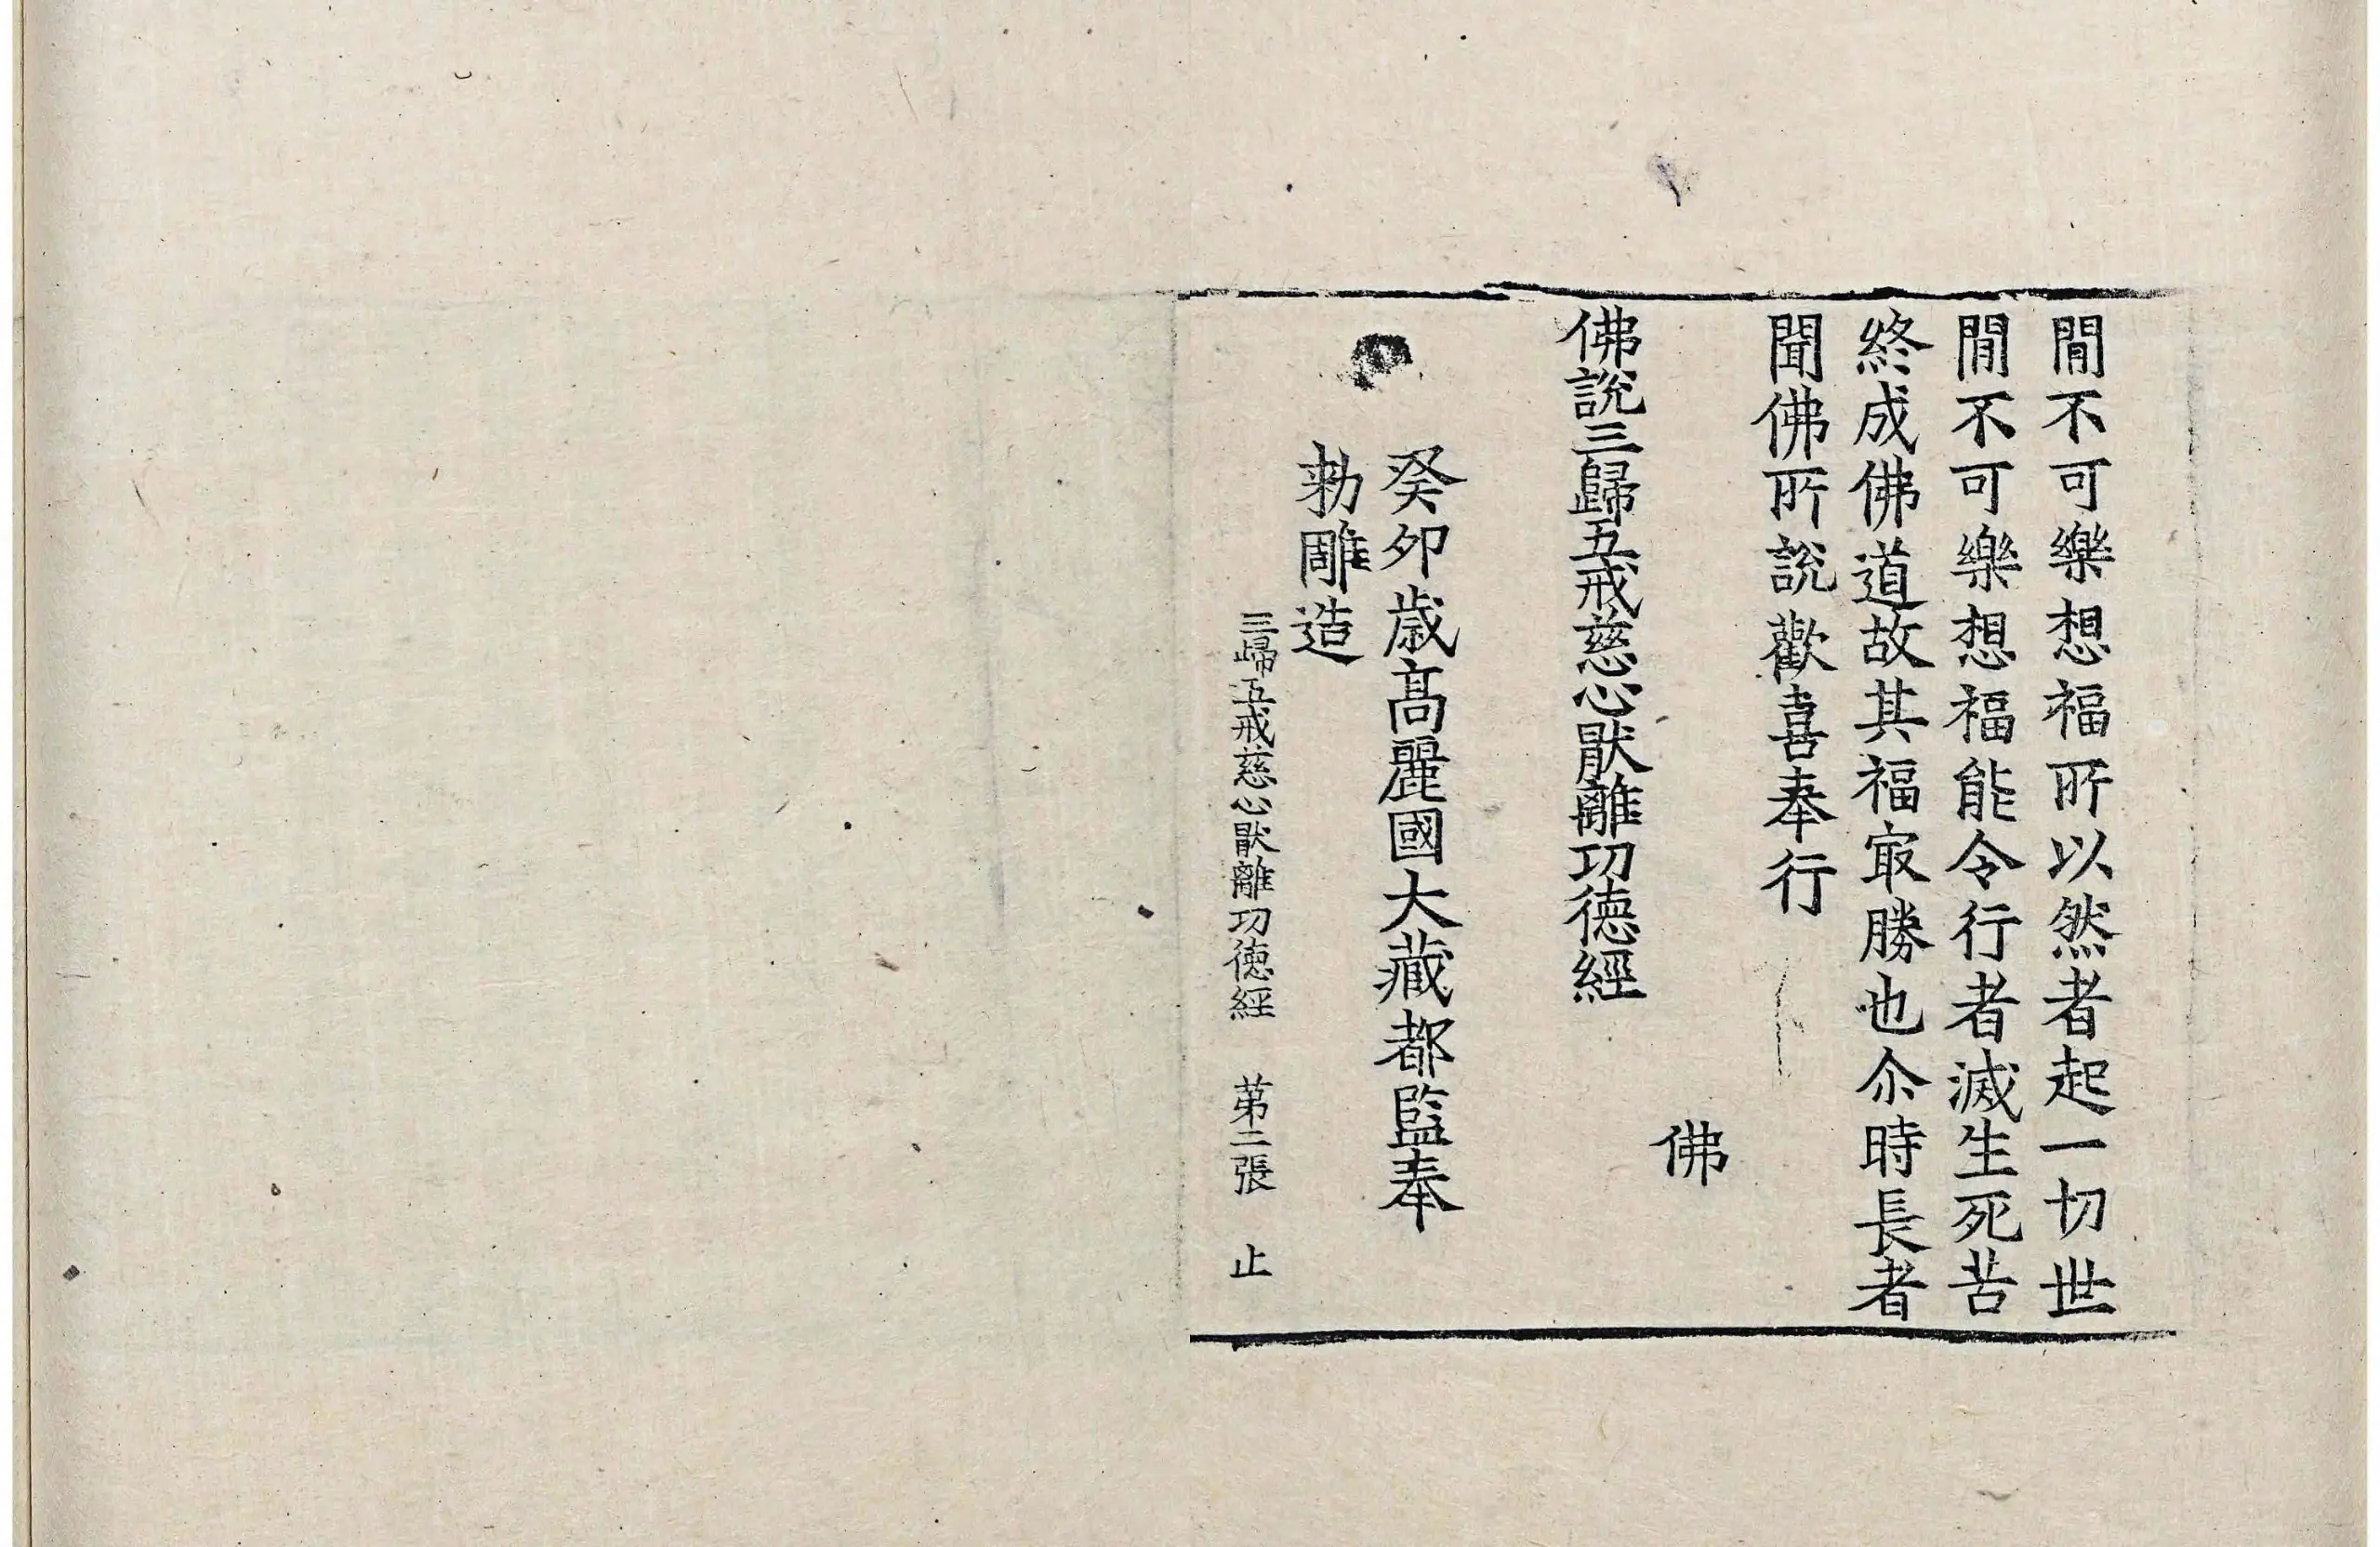 閒不可樂想福所以然者起一切世
閒不可樂想福能令行者滅生死苦
終成佛道故其福㝡勝也尒時長者
聞佛所說歡喜奉行
佛
佛說三歸五戒慈心猒離功德經
癸卯歲高麗國大藏都監奉
勑雕造
三歸五戒慈心猒離功德經 第二張 止